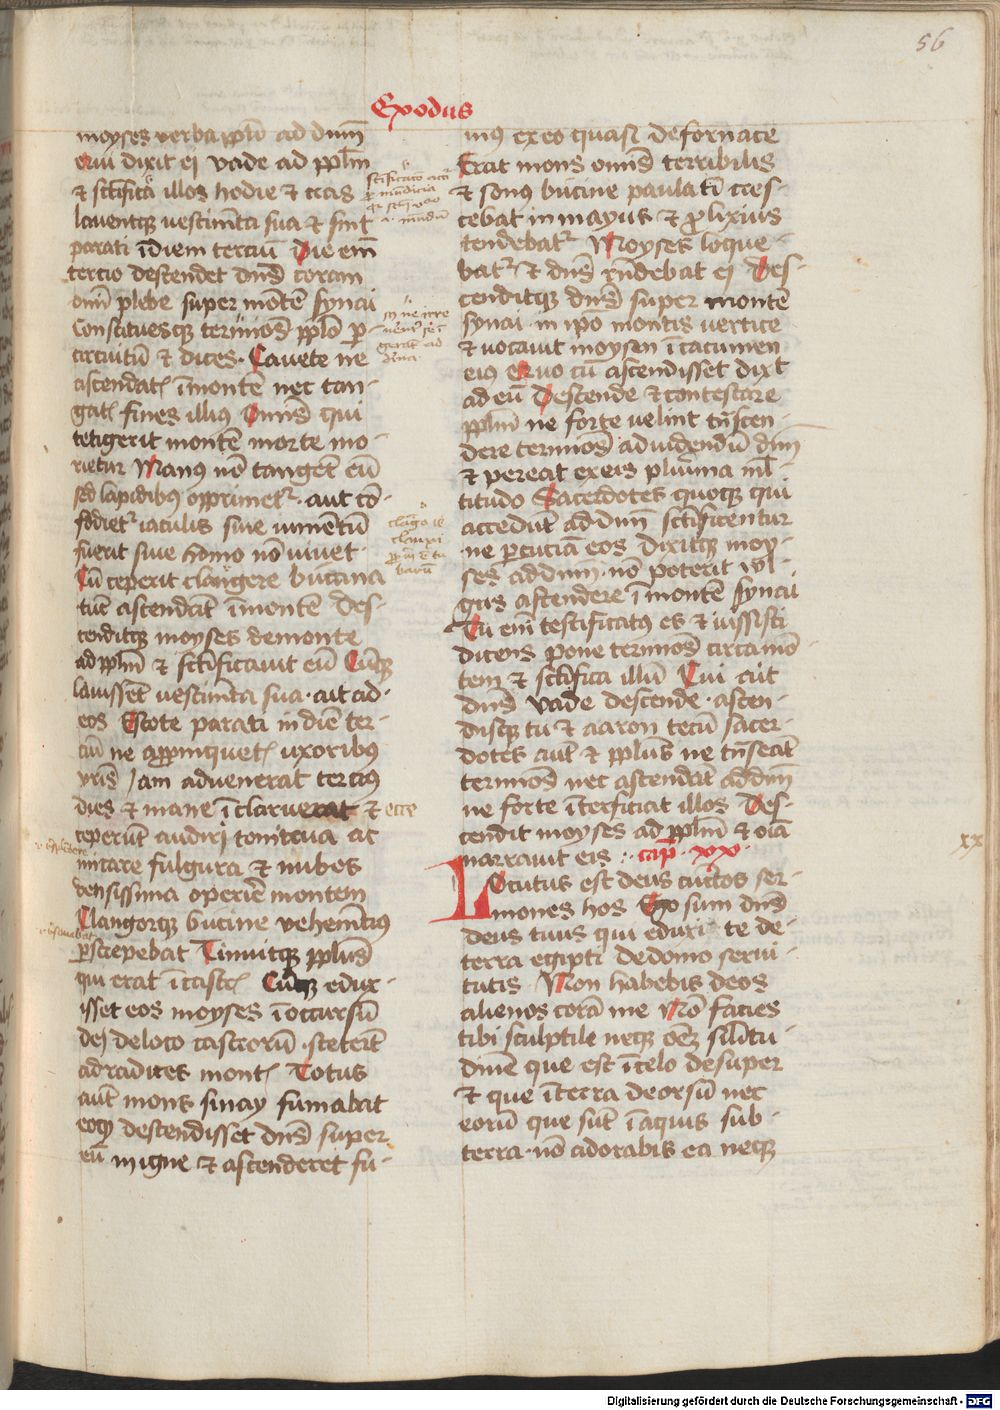 56
Exodus
moyses verba ppłi ad dnm̄
Qui dixit ei vade ad pplm̄
& sctīfica illos hodie & cras
laventqꝫ vestimēta sua & sint
parati ī diem terciū Die em̄
tercio descendet dn̄s coram
omī plebe super mōtē synai
Constituesqꝫ termīos pplō ꝑ
circuitū & dices · Cavete ne
ascendatꝭ ī montē nec tan-
gatꝭ fines illius Omīs qui
tetigerit montē morte mo-
rietur Manꝰ nō tanget eū
sed lapidibꝰ opprimetᷣ · aut cō-
fodietᷣ iaculis sive iumentū
fuerit sive homo nō vivet ·
Cū ceperit clangere buccina
tūc ascendāt ī montē Des-
cenditqꝫ moyses de monte
ad pplm̄ & sctīficavit eū Cūqꝫ
lavissēt vestimēta sua · ait ad ·
eos Estote parati in diē ter-
ciū ne appīnquetꝭ uxoribꝰ
vrīs Iam advenerat tercius
dies & mane īclaruerat & ecce
ceperūt audiri tonitrua ac
micare fulgura & nubes
densissima operiē montem
Clangorqꝫ bucine vehemēcius
ꝑstrepebat Timuitqꝫ pplus̄
qui erat ī castrꝭ Cūqꝫ edux-
isset eos moyses ī occursū
dei de loco castrorū · steterūt
ad radices montꝭ Totus
aūt mons sinay fumabat
eoqꝫ descendisset dn̄s super
eū in igne & ascenderet fu-
mꝰ ex eo quasi de fornace
Erat mons omīs terribilis
& sonꝰ bucine paulatī cres-
cebat in mayus & ꝓlixius
tendebatᷣ Moyses loque-
batᷣ & dn̄s rn̄debat ei Des-
cenditqꝫ dn̄s super montē
synai in ipō montis vertice
& vocavit moysen ī cacumen
eius Quo cū ascendisset dixit
ad eū Descende & contestare
pplm̄ ne forte velint trāscen-
dere termīos ad videndū dnm̄
& pereat ex eis plurīma ml̄-
titudo Sacerdotes quoqꝫ qui
accedūt ad dnm̄ sctīficentur
ne ꝑcuciā eos Dixitqꝫ moy-
ses ad dnm̄ · nō poterit vol-
gus ascendere ī montē synai
Tu em̄ testificatꝰ es & iussisti
dicens pone termīos circa mō-
tem & sctīfica illū Cui ait
dn̄s vade descende · ascen-
disqꝫ tu & aaron tecū sacer-
dotes aūt & pplus ne trāseāt
termīos nec ascendāt ad dnm̄
ne forte īterficiat illos Des-
cendit moyses ad pplm̄ & oīa
narravit eis : · cap̄ · xx ·
xx
Locutus est deus cūctos ser-
mones hos Ego sum dn̄s
deus tuus qui eduxi te de
terra egipti de domo servi-
tutis · Non habebis deos
alienos corā me Nō facies
tibi sculptile neqꝫ oēꝫ silītu-
dinē que est ī celo desuper
& que ī terra deorsū nec
eorū que sūt ī aquis sub-
terra · nō adorabis ea neqꝫ
Digitalisierung gefördert durch die Deutsche Forschungsgemeinschaft - DFG